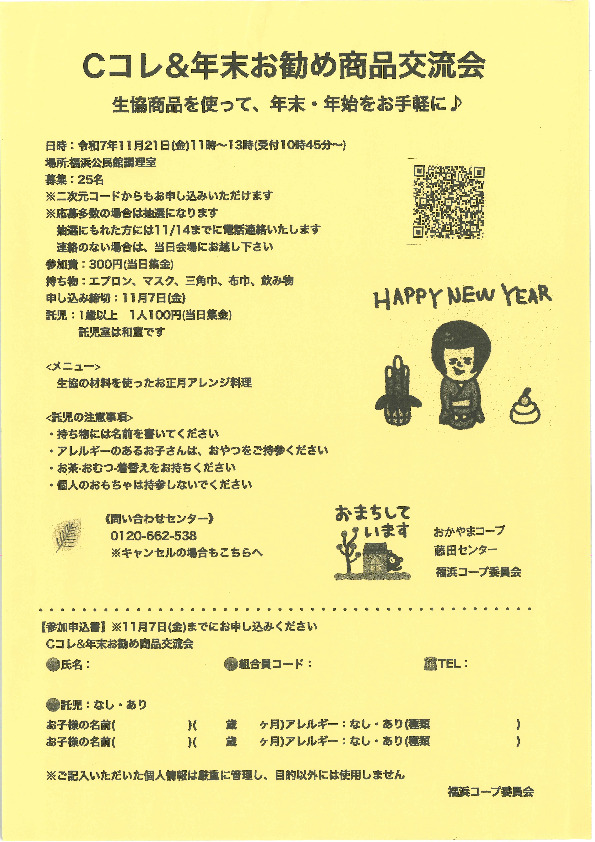 Cコレ&年末お勧め商品交流会
生協商品を使って、年末・年始をお手軽に♪
日時：令和7年11月21日(金)11時～13時(受付10時45分～)
場所:福浜公民館調理室
募集：25名
※二次元コードからもお申し込みいただけます
※応募多数の場合は抽選になります
抽選にもれた方には11/14までに電話連絡いたします
連絡のない場合は、当日会場にお越し下さい
参加費：300円(当日集金)
持ち物：エプロン、マスク、三角巾、布巾、飲み物
申し込み締切：11月7日(金)
託児：1歳以上　1人100円(当日集金)
託児室は和室です
HAPPY NEW YEAR
<メニュー>
生協の材料を使ったお正月アレンジ料理
<託児の注意事項>
・持ち物には名前を書いてください
・アレルギーのあるお子さんは、おやつをご持参ください
・お茶·おむつ·着替えをお持ちください
・個人のおもちゃは持参しないでください
《問い合わせセンター》
0120-662-538
※キャンセルの場合もこちらへ
おまちして
います
おかやまコープ
藤田センター
福浜コープ委員会
【参加申込書】※11月7日(金)までにお申し込みください
Cコレ&年末お勧め商品交流会
氏名：　組合員コード：　TEL：
託児：なし・あり
お子様の名前(　　　)(　　歳　　ヶ月)アレルギー：なし・あり(種類　　　)
お子様の名前(　　　)(　　歳　　ヶ月)アレルギー：なし・あり(種類　　　)
※ご記入いただいた個人情報は厳重に管理し、目的以外には使用しません
福浜コープ委員会